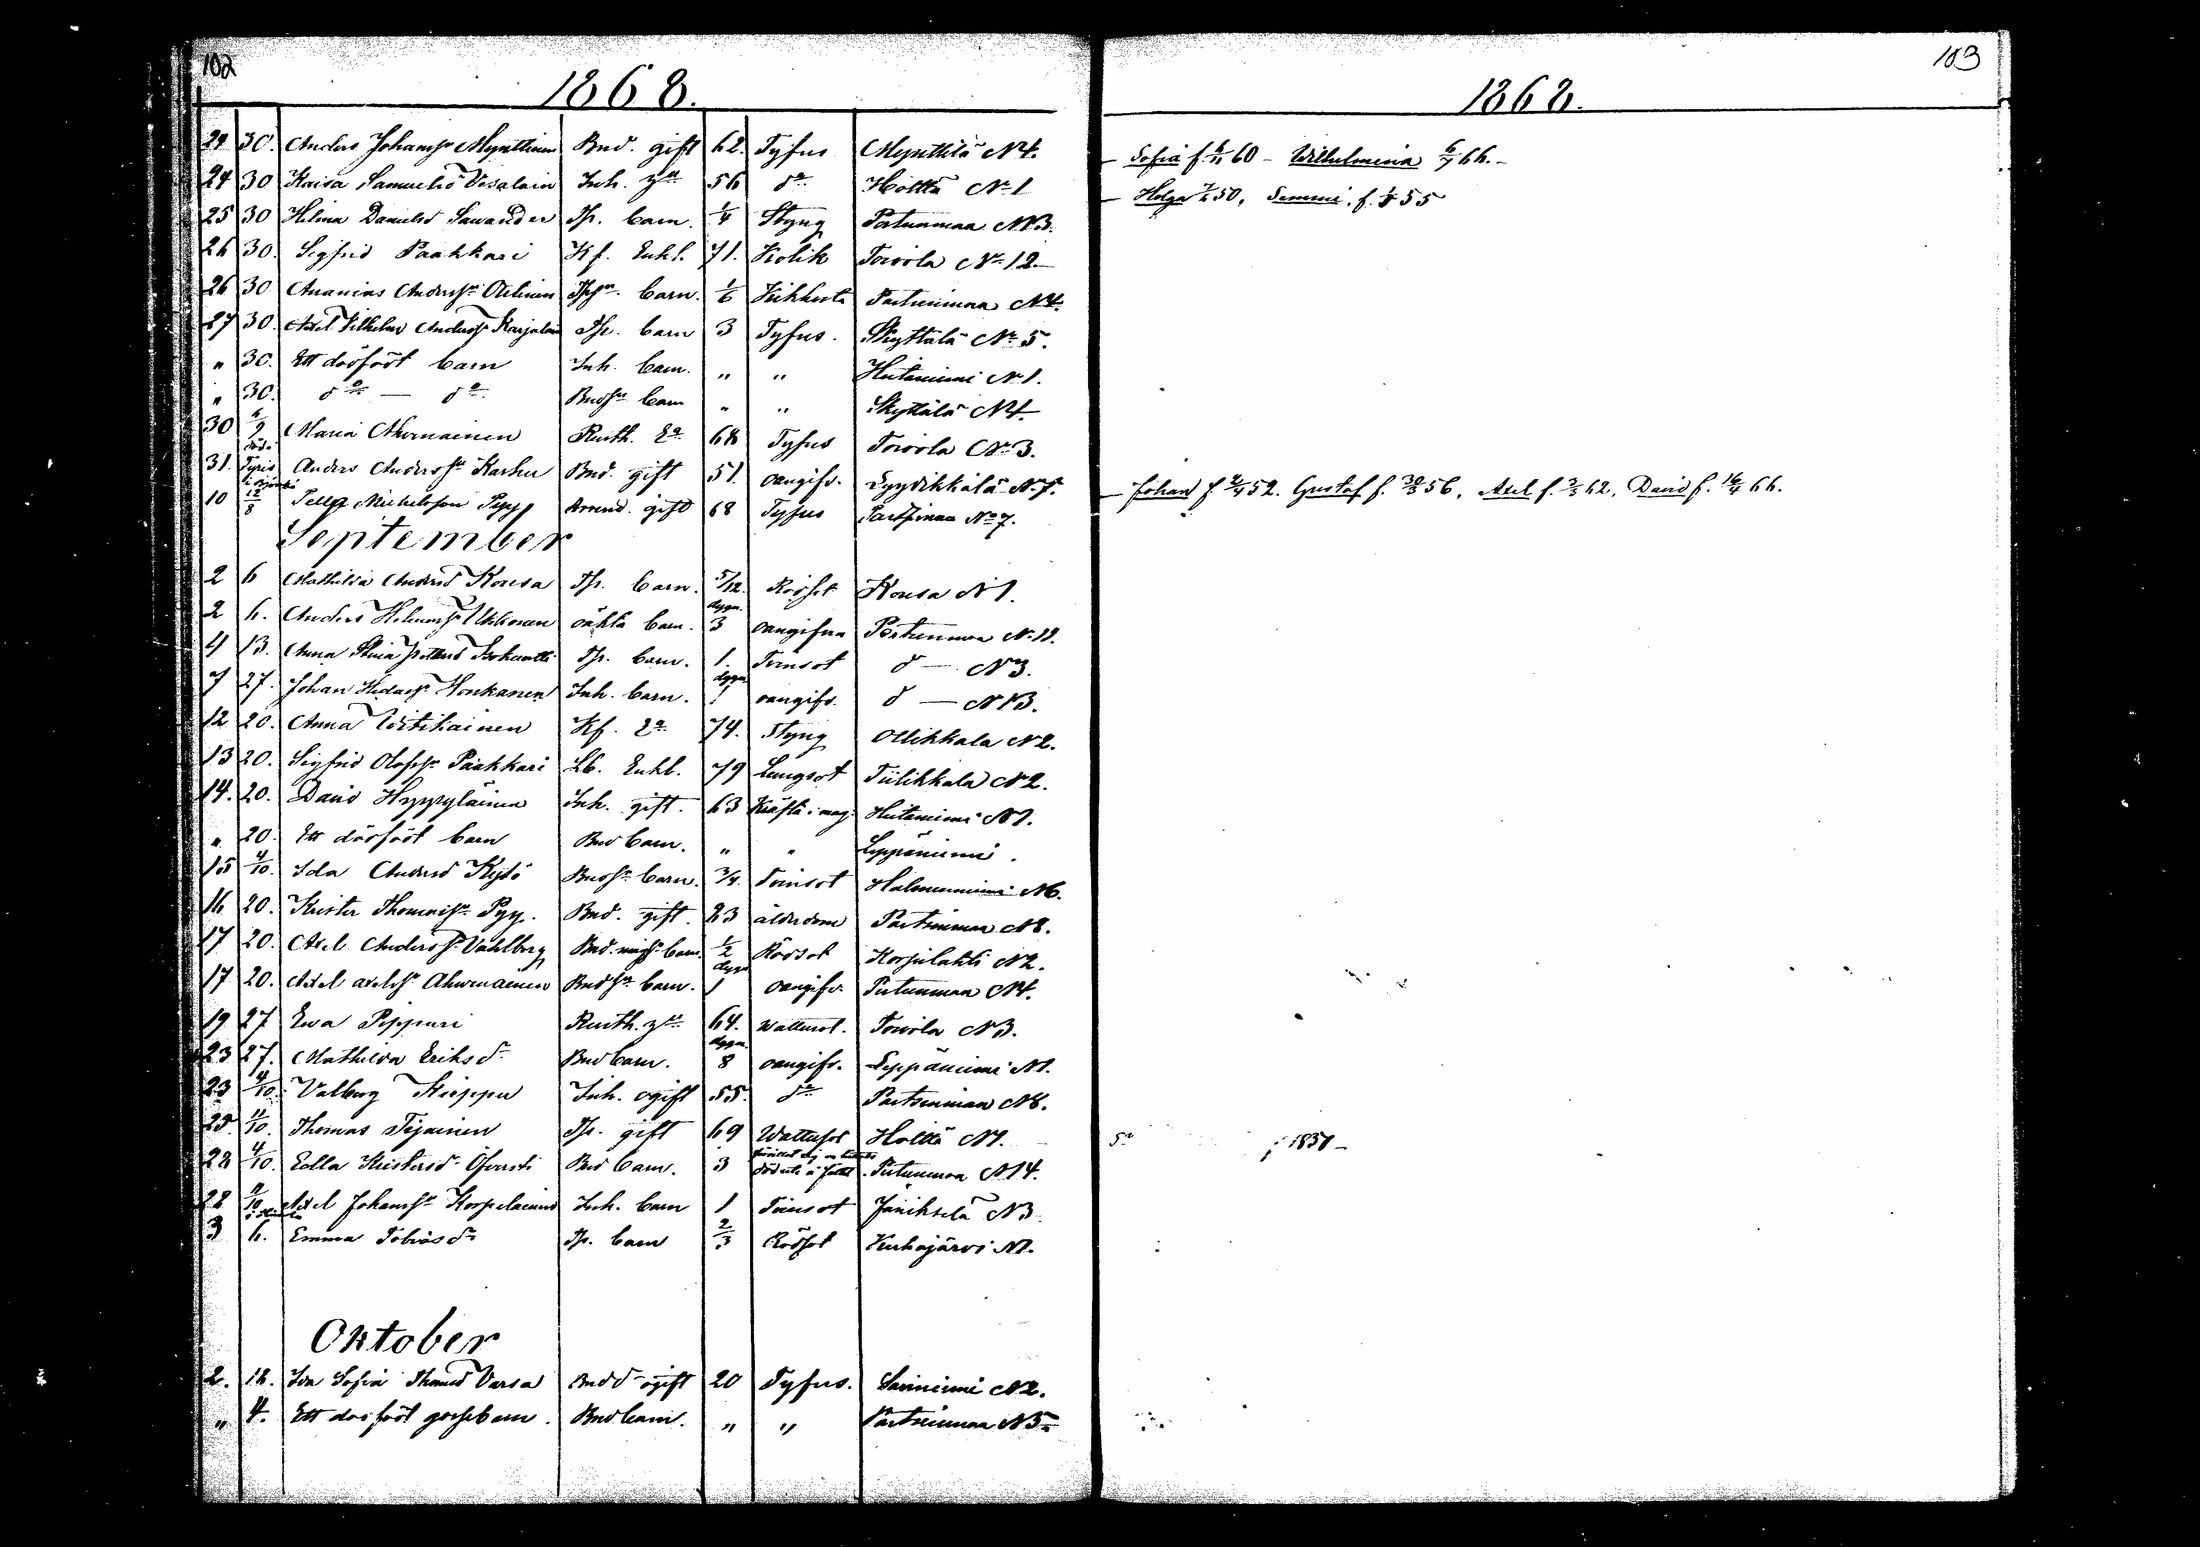 102
1868.
29 30. Anders Johanss Mynttinen Bnd. gift 62. Tyfus Mynttilä N4.
24 30 Kaisa Samuelsd Vesalain Inh. 56 do Hölttä No 1
25 30 Helena Danielsd Savander Tp. barn. 1/4 Styng Pertunmaa N3.
26 30. Sigfrid Paakkari Kf. Enkl. 71. Kolik Toivola No 12.
26 30 Ananias Anderss Otelinen barn. 1/6 Kikhosta Partsimaa N4.
27 30. Axel Vilhelm Anderss Karjalain Tp. barn 3 Tyfus. Skyttälä No 5.
" 30. Ett dödfödt barn Inh. barn. " " Hietaniemi N1.
" 30. do — do Bndsn barn " " Skyttälä N4.
30 6/9 Maria Ahvenainen Rusth. Ea 68 Tyfus Toivola No 3.
31. Anders Anderssn Karhu Bnd. gift 51. oangifv. Lyydikkälä No 7.
10 12/8 Pelle Michelsson Pyy Arrend. gift 68 Tyfus Partsimaa No 7.
September
2 6 Mathilda Andersd Kousa Tp. barn. 5/12. Rödsot Kousa N1.
2 6. Anders Ukkonen oäkta barn. dygn. 3 oangifven Pertunmaa N. 11.
4 13. Anna Stina Tp. barn. 1. Tvinsot d — N3.
7 27. Johan Honkanen Inh. barn. dygn 1 oangifv. d — N13.
12 20. Anna Vitikainen Kf. Ea 74. Styng Ollikkala N2.
13 20. Sigfrid Olofss Paakkari Lb. Enkl. 79 Lungsot Tiilikkala N2.
14. 20. David Hyyryläinen Inh. gift. 63 Kräfta i mag. Hietaniemi N1.
" 20. Ett dödfödt barn Bnd barn. " " Leppäniemi.
15 4/10. Ida Andersd Kyöstö Bndsn barn. 3/4. Tvinsot Halmeniemi N6.
16 20. Krister Thomass Pyy. Bnd. gift. 83 ålderdom Partsimaa N8.
17 20. Axel Anderss Vahlberg Bnd. barn. 1/2 Rödsot Korpilahti N2.
17 20. Axel Axelss Ahvenainen Bndsn barn. dygn 1 oangifv. Pertunmaa N4.
19 27 Eva Pippuri Rusth. 64. Wattusot. Toivola N3.
23 27. Mathilda Eriksdr Bnd barn. dygn. 8 oangifv. Leppäniemi N1.
23 4/10. Valborg Kieppu Inh. ogift 55. do Partsimaa N8.
25. 11/10. Thomas Tijainen Tp. gift 69 Wattusot Hölttä N1.
28 4/10. Edla Kristersd Bnd barn. 3 Pertunmaa N14.
28 Axel Johanss Korpelainen Inh. barn 1 Tvinsot Jäniksela N3
3 6. Emma Tobiasdr Tp. barn 2/3 Rödsot Kuhajärvi N1.
Oktober
2. 18. Ida Sofia Thomasd Varsa Bnddr ogift 20 Tyfus. Savniemi N2.
" 4. Ett dödfödt gossebarn. Bnd barn. " " Partsimaa N5
103
1868.
— Sofia f. 6/11 60 – Wilhelmina 6/7 66. –
— Helga 50, Semmi. f. 55
— Johan f. 52. Gustaf f. 56, Axel f. 62, David f. 66.
1851 –